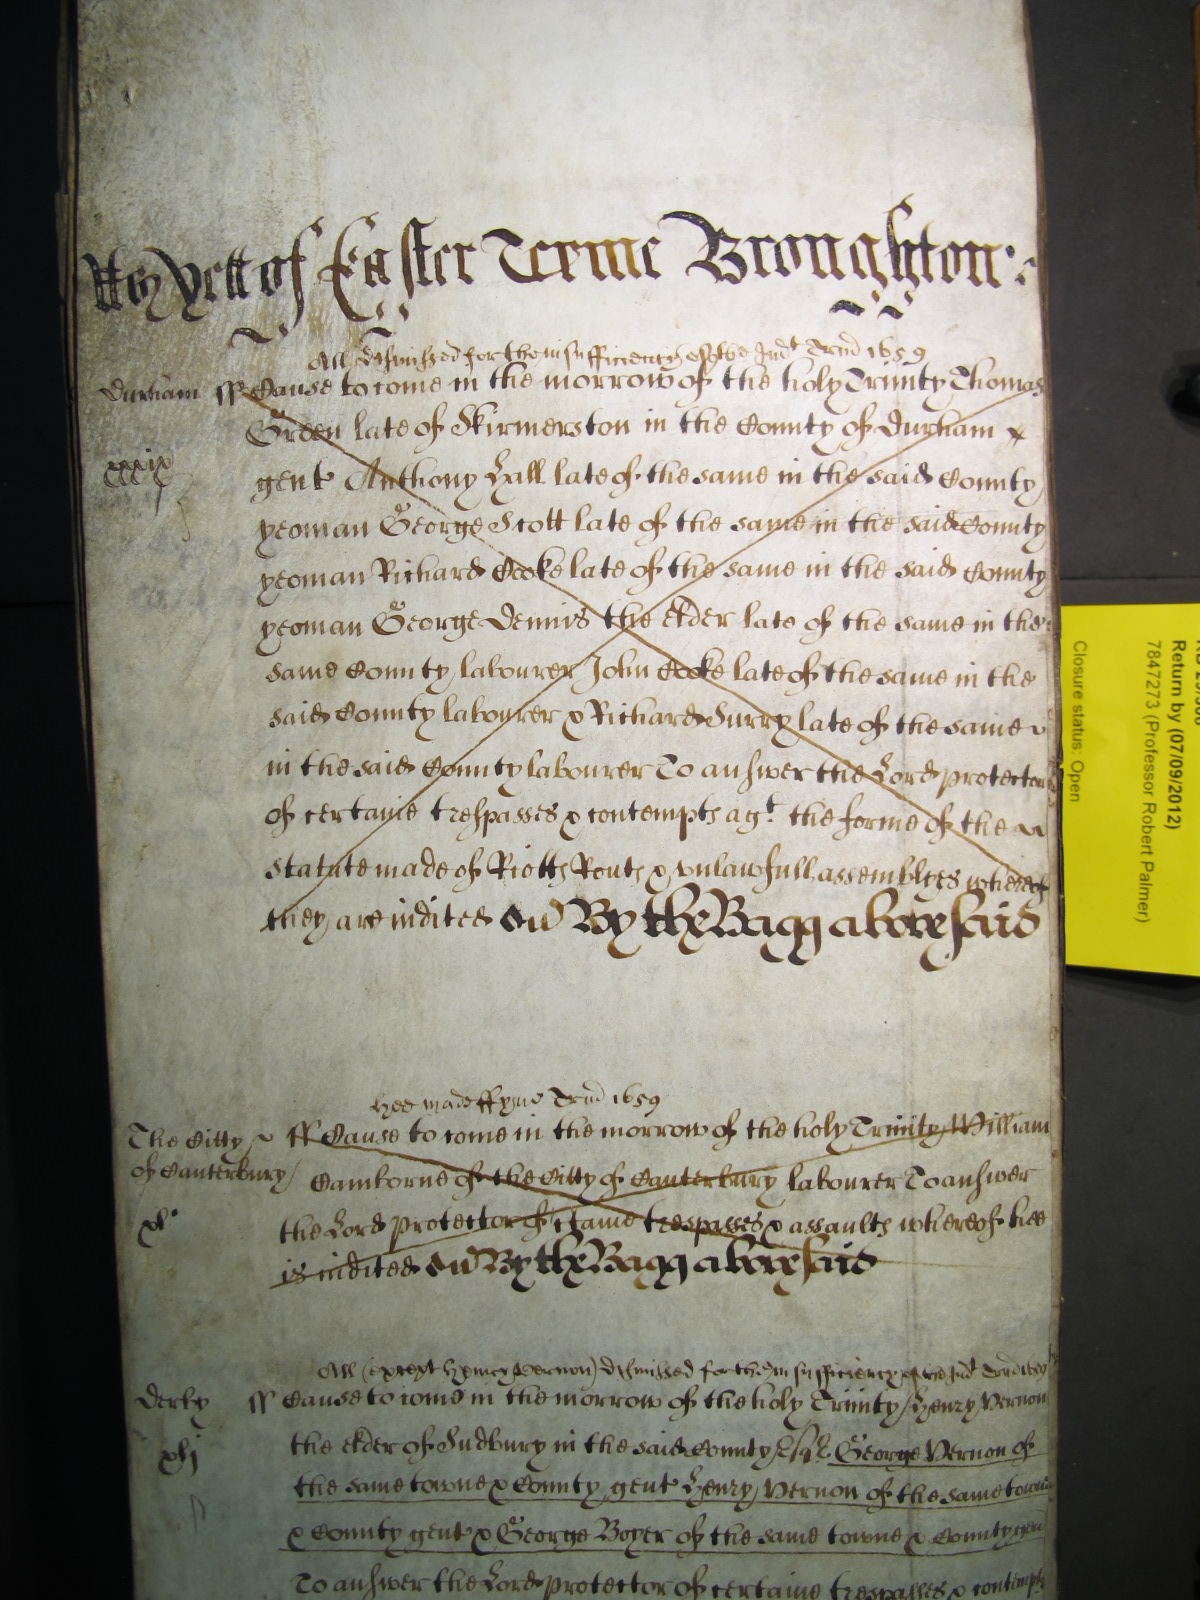 yett of Easter Terme Broughton:
All dismissed for the insufficiency of the Indt Trin 1659
Durham ss Cause to come in the morrow of the holy Trinity Thomas
Green late of Skirmerston in the County of Durham
xxxix
gent Anthony Hall late of the same in the said County
yeoman George Scott late of the same in the said County
yeoman Richard Cooke late of the same in the said County
yeoman George Dennis the elder late of the same in the
same County labourer John Cooke late of the same in the
said County labourer & Richard Surry late of the same
in the said County labourer To answer the Lord protector
of certaine trespasses & contempts agt the forme of the
statute made of Riotts Routs & unlawfull assemblyes whereof
they are indited By the Bagg abovesaid
Hee made ffyne Trin 1659
The Citty ss Cause to come in the morrow of the holy Trinity William
of Canterbury Camborne of the Citty of Canterbury labourer To answer
xl the Lord protector of ctaine trespasses & assaults whereof hee
is indited By the Bagg abovesaid
All (except Henry Vernon) dismissed for the insufficiency of the Indt
Derby ss Cause to come in the morrow of the holy Trinity Henry Vernon
xlj the elder of Sudbury in the said County Esqr. George Vernon of
the same towne & County gent Henry Vernon of the same towne
& County gent & George Boyer of the same towne & County gent
To answer the Lord protector of certaine trespasses & contempts
Closure status: Open
7847273 (Professor Robert Palmer)
Return by (07/09/2012)